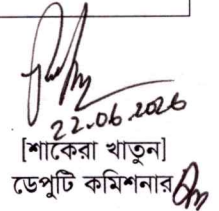 22.06.2026
[শাকেরা খাতুন]
ডেপুটি কমিশনার